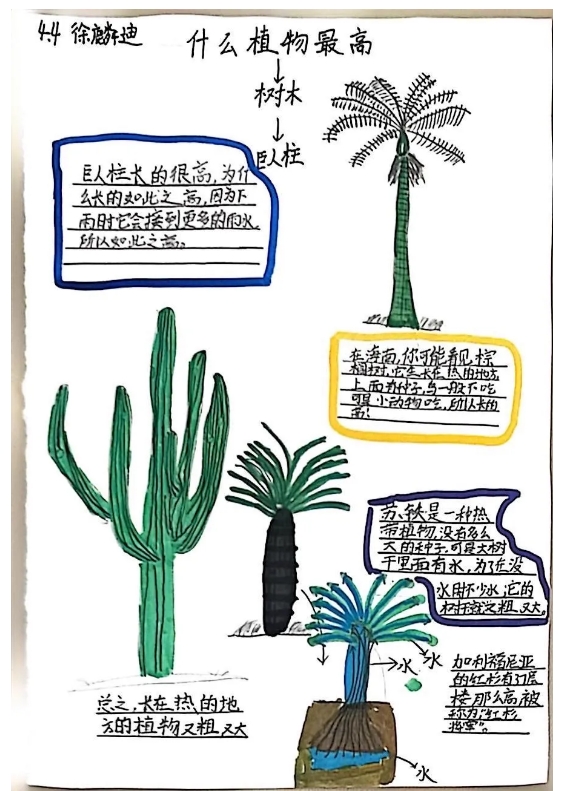 4.4 徐麟迪
什么植物最高
树木
巨人柱
巨人柱长的很高，为什
么长的如此之高，因为下
雨时它会接到更多的雨水，
所以如此之高。
在海南，你可能看见棕
榈树，它生长在热的地方
上面有种子，鸟一般不吃
可是小动物吃，所以长的
高！
苏铁是一种热
带植物，没有多么
大的种子，可是大树
干里面有水，为了在没
水用不少水，它的
树干就这粗又大。
水
水
水
加利福尼亚
的红杉有31层
楼那么高被
称为“红杉
将军”。
总之，长在热的地
方的植物又粗又大